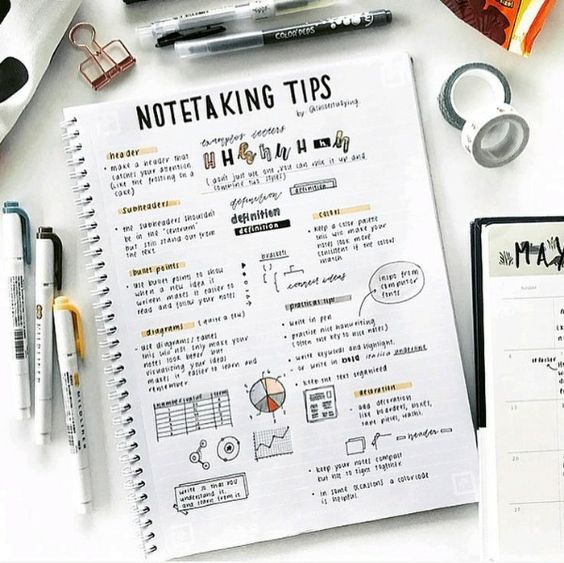 COLOR PEPS
NOTETAKING TIPS
header
• make a header that
catches your attention
(like the frosting on a
cake)
H H H H H
( don't just use one, you can mix it up and
combine two styles)
subheaders
• the subheaders shouldn't
be in the "centrum"
but still stand out from
the text
definition
definition
definition
definition
colors
keep a color palette
this will make your
notes look more
consistent if the colors
match
bullet points
• use bullet points to show
when a new idea is
written makes it easier to
read and follow your notes
brackets
connect ideas
inspo from
computer
fonts
practical tips
• write in pen
• practice nice handwriting
(often the key to nice notes)
• write keywords and highlight,
or write in bold underline
• keep the text organized
diagrams (quite a few)
• use diagrams / tables
this will not only make your
notes look better but
visualizing your ideas
makes it easier to learn and
remember
decoration
• add decoration
like boarders, boxes,
tape pieces, washi.
header
• keep your notes compact
but not to tight together
• in some occasions a colorcode
is helpful
write so that you
understand it
and learn from it
MA